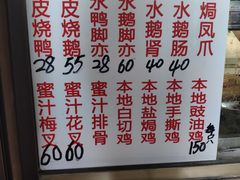 皮烧鸭
28
皮烧鹅
55
水鸭脚亦
28
水鹅脚亦
60
水鹅肾
40
水鹅肠
40
焗凤爪
蜜汁梅叉
60
蜜汁花叉
60
蜜汁排骨
本地白切鸡
本地盐焗鸡
本地手撕鸡
本地豉油鸡
150